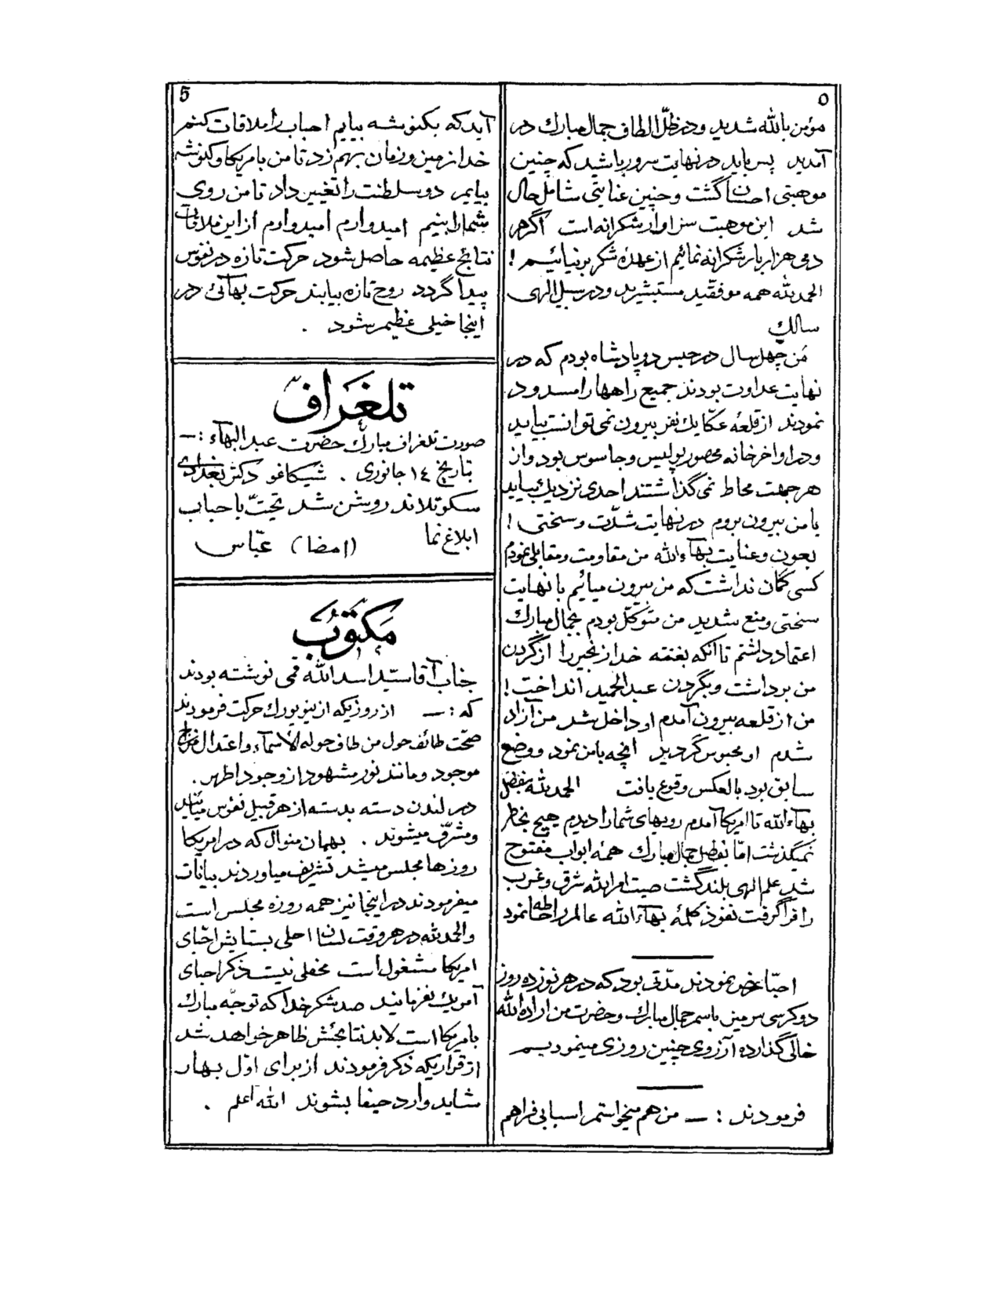 ۵
مؤمن بالله شدید ودر ظلّ الطاف جمال مبارک در
آمدید پس باید در نهایت سرور باشید که چنین
موهبتی احسان گشت وچنین عنایتی شامل حال
شد این موهبت سزاوار شکرانه است اگر هر
دمی هزار بار شکرانه نمائیم از عهدهٔ شکر بر نیائیم !
الحمد لله همه موفقید مستبشرید ودر سبیل الهی
سالک
من چهل سال در حبس دو پادشاه بودم که در
نهایت عداوت بودند جمیع راهها را مسدود
نمودند از قلعهٔ عکا یک نفر بیرون نمی توانست بیاید
ودر اواخر خانه محصور پولیس وجاسوس بود واز
هر جهت محاط نمی گذاشتند احدی نزدیک بیاید
یا من بیرون بروم در نهایت شدّت وسختی !
بعون وعنایت بهآءالله من مقاومت ومقابلی نمودم
کسی گمان نداشت که من بیرون میائیم با نهایت
سختی ومنع شدید من متوکّل بودم بجمال مبارک
اعتماد داشتم تا آنکه بغتة خدا زنجیر را از گردن
من برداشت وبگردن عبدالحمید انداخت !
من از قلعه بیرون آمدم او داخل شد من آزاد
شدم او محبوس گردید آنچه با من نمود ووضع
سابق بود بالعکس وقوع یافت الحمد لله بفضل
بهآءالله تا امریکا آمدم رویهای شما را دیدم هیچ بخاطر
نمیگذشت امّا بفضل جمال مبارک همهٔ ابواب مفتوح
شد علم الهی بلند گشت صیت امرالله شرق وغرب
را فرا گرفت نفوذ کلمهٔ بهآءالله عالم را احاطه نمود
احبّا عرض نمودند مدّتی بود که در هر نوزده روز
دو کرسی سر میز باسم جمال مبارک وحضرت من اراده الله
خالی گذارده آرزوی چنین روزی مینمودیم
فرمودند : — من هم میخواستم اسبابی فراهم
5
آید که بکنوشه بیایم احباب را ملاقات کنم
خدا زمین وزمان بهم زد تا من بامریکا وکنوشه
بیایم دو سلطنت را تغییر داد تا من روی
شما را ببینم امیدوارم امیدوارم از این ملاقات
نتایج عظیمه حاصل شود حرکت تازه در نفوس
پیدا گردد روح تازه بیابند حرکت بهآئی در
اینجا خیلی عظیم شود .
تلغراف
صورت تلغراف مبارک حضرت عبدالبهآء : —
تاریخ ١٤ جانوری . شیکاغو دکتر بغدادی
سکوتلاند روشن شد تحیّت باحباب
ابلاغ نما (امضا) عبّاس
مکتوب
جناب آقا سیّد اسدالله قمی نوشته بودند
که : — از روزیکه از نیویورک حرکت فرمودند
صحّت طائف حول من طاف حوله الأسمآء واعتدال مزاج
موجود ومانند نور مشهود از وجود اطهر .
در لندن دسته بدسته از هر قبیل نفوس میآیند
ومشرّف میشوند . بهمان منوال که در امریکا
روزها مجلس میشد تشریف میاوردند بیانات
میفرمودند در اینجا نیز همه روزه مجلس است
والحمد لله در هر وقت لسان احلی بستایش احبّای
امریکا مشغول است محفلی نیست ذکر احبای
آمریک نفرمایند صد شکر خدا که توجّه مبارک
بامریکا است لابد نتایجش ظاهر خواهد شد
از قراریکه ذکر فرمودند از برای اوّل بهار
شاید وارد حیفا بشوند الله اعلم .